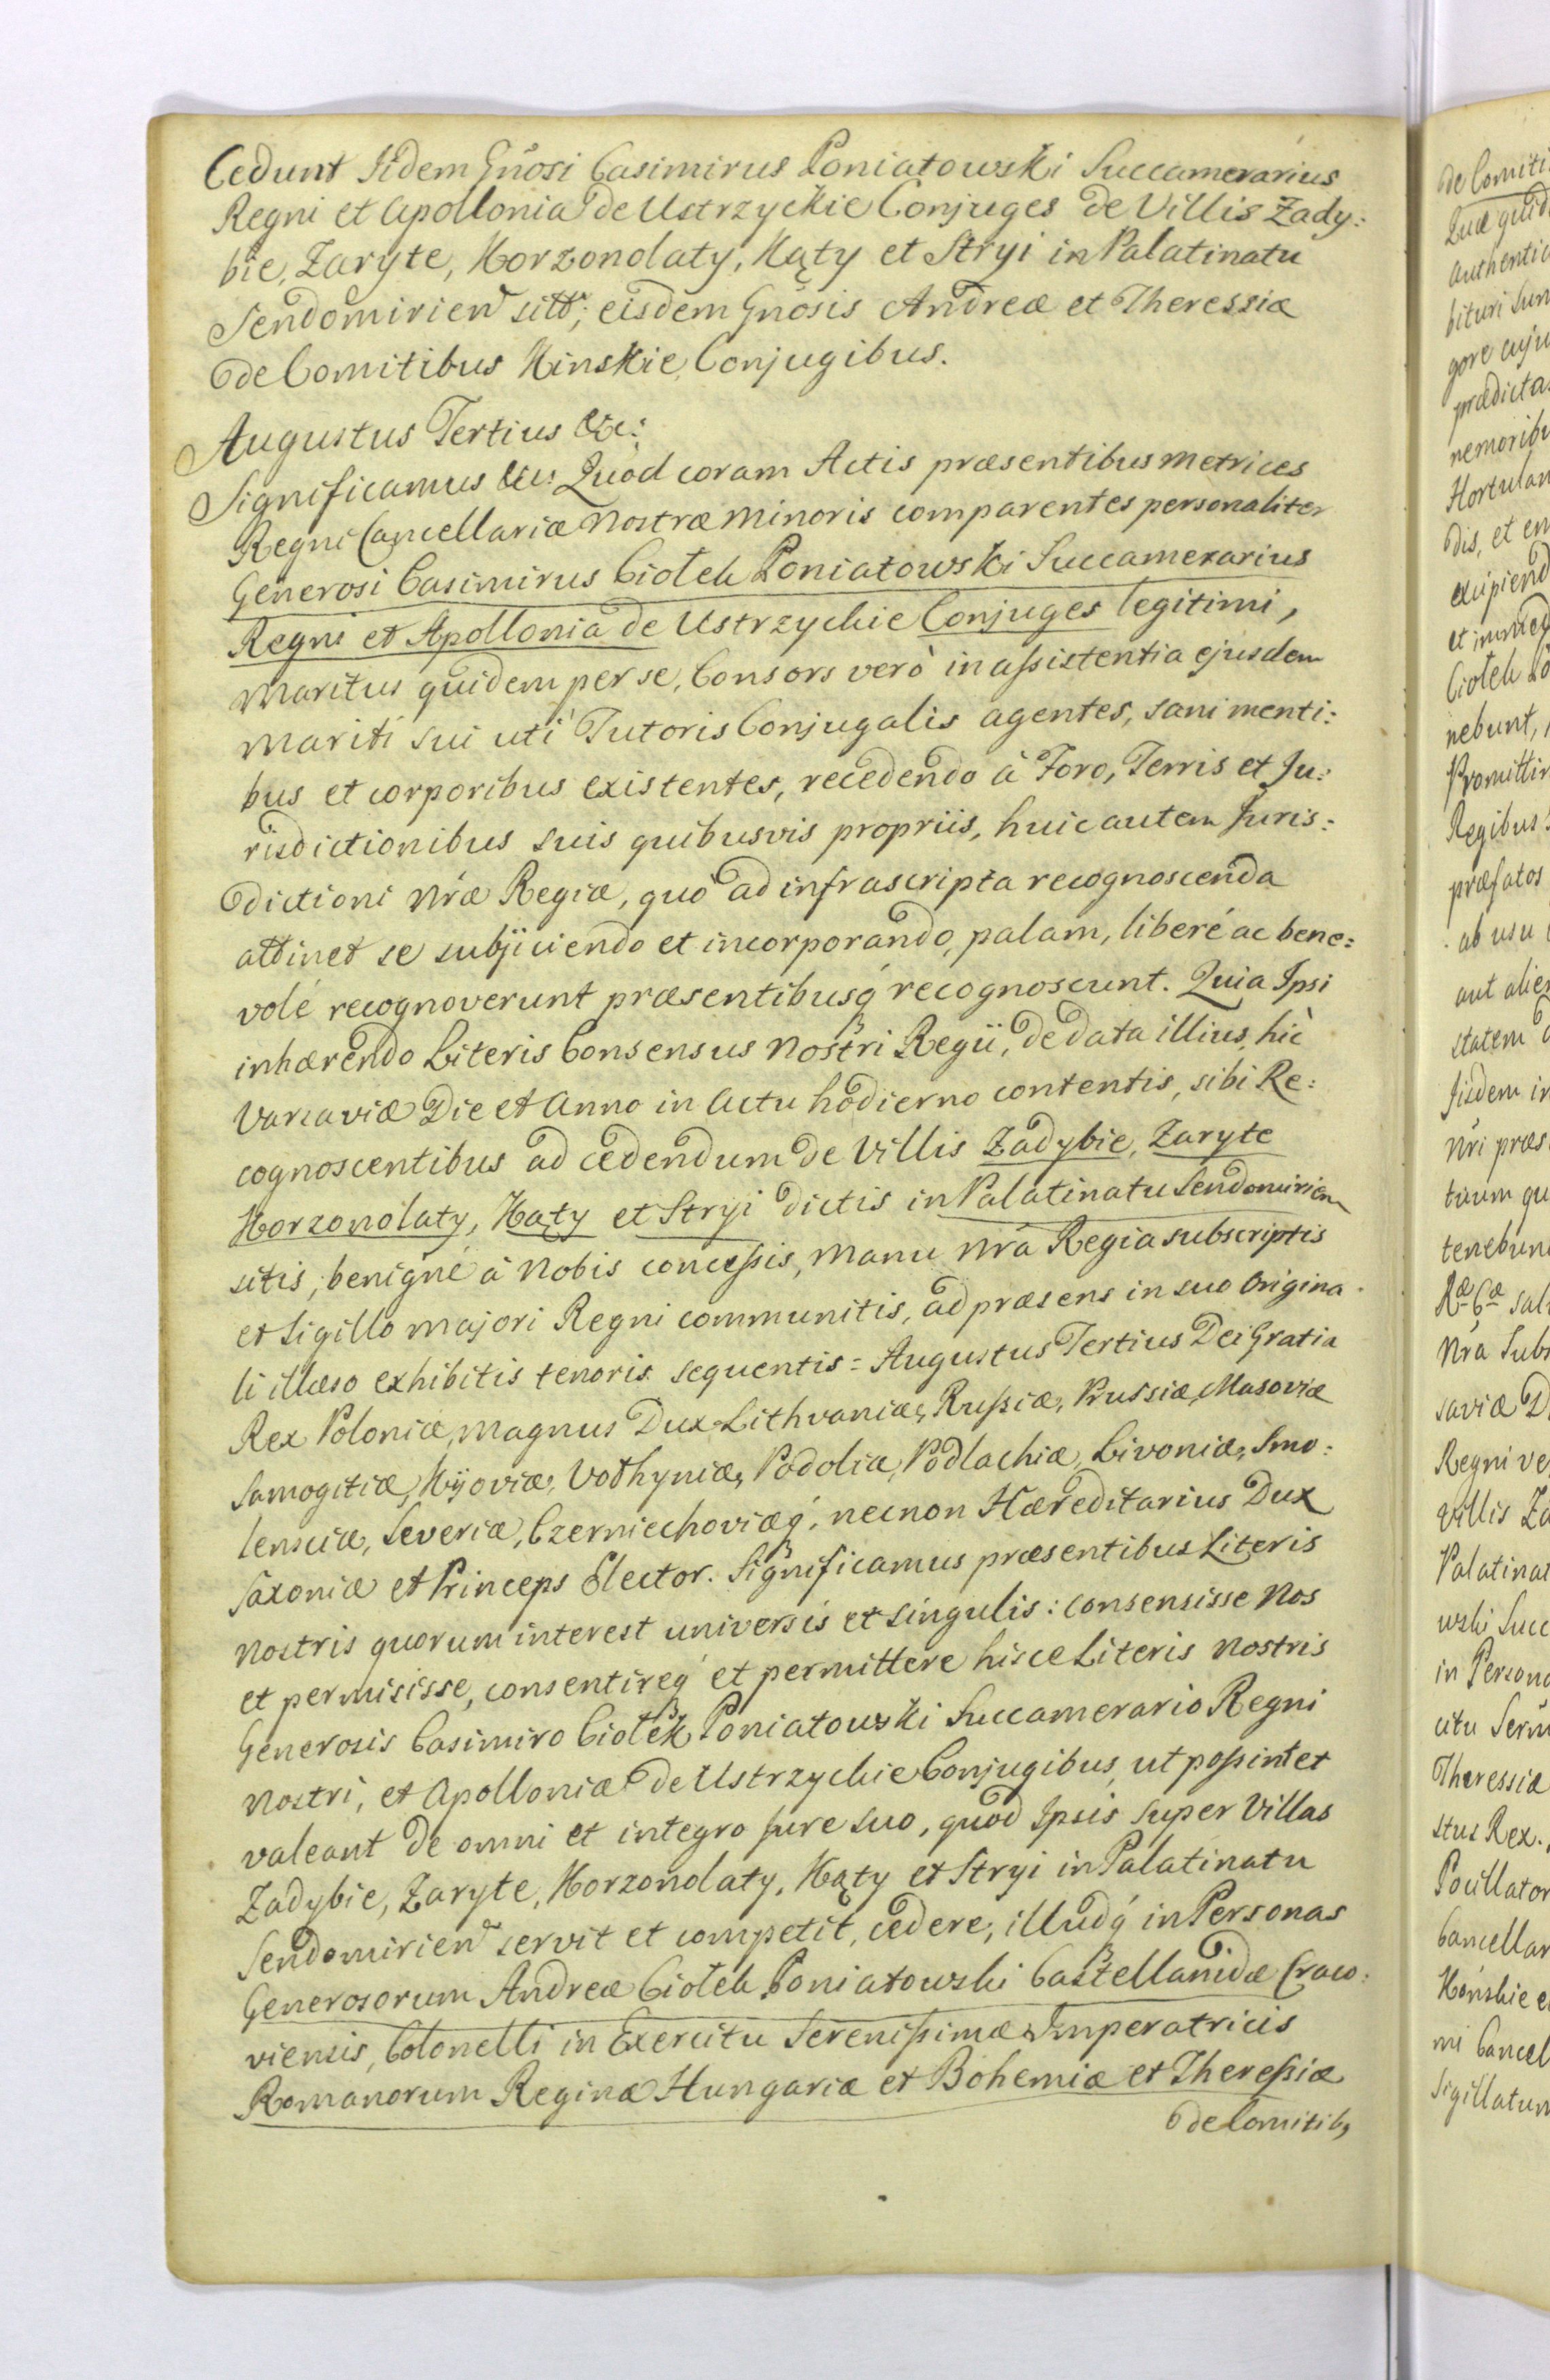 Cedunt Iidem Gnosi Casimirus Poniatowski Succamerarius
Regni et Apollonia de Ustrzyckie Conjuges de Villis Zady:
bie, Zaryte, Korzonolaty, Kąty et Stryi in Palatinatu
Sendomirien sitt; eisdem Gnosis Andreæ et Theressiæ
de Comitibus Kinskie Conjugibus.
Augustus Tertius &c:
Significamus &c: Quod coram Actis præsentibus Metrices
Regni Cancellariæ Nostræ Minoris comparentes personaliter
Generosi Casimirus Ciołek Poniatowski Succamerarius
Regni et Apollonia de Ustrzyckie Conjuges legitimi,
Maritus quidem per se, Consors verò in assistentia ejusdem
Mariti sui uti Tutoris Conjugalis agentes, sani menti:
bus et corporibus existentes, recedendo à Foro, Terris et Ju:
risdictionibus suis quibusvis propriis, huic autem Juris:
dictioni Nræ Regiæ, quo ad infrascripta recognoscenda
attinet se subjiciendo et incorporando, palam, liberé ac bene:
volé recognoverunt præsentibusq́ recognoscunt. Quia Ipsi
inhærendo Literis Consensus Nostri Regii, de data illius hic
Varsaviæ Die et Anno in Actu hodierno contentis, sibi Re:
cognoscentibus ad cedendum de Villis Zadybie, Zaryte
Korzonolaty, Kąty et Stryi dictis in Palatinatu Sendomirien
sitis, benigné à Nobis concessis, Manu Nrá Regia subscriptis
et Sigillo Majori Regni communitis, ad præsens in suo Origina
li illæso exhibitis tenoris sequentis = Augustus Tertius Dei Gratia
Rex Poloniæ, Magnus Dux Lithvaniæ, Russiæ, Prussiæ, Masoviæ
Samogitiæ, Kijoviæ, Volhyniæ, Podoliæ, Podlachiæ, Livoniæ, Smo:
lensciæ, Severiæ, Czerniechoviæq́, necnon Hæreditarius Dux
Saxoniæ et Princeps Elector. Significamus præsentibus Literis
Nostris quorum interest universis et singulis: consensisse Nos
et permisisse, consentireq́ et permittere hisce Literis Nostris
Generosis Casimiro Ciołek Poniatowski Succamerario Regni
Nostri, et Apolloniæ de Ustrzyckie Conjugibus, ut possint et
valeant de omni et integro Jure suo, quod Ipsis super Villas
Zadybie, Zaryte, Korzonolaty, Kąty et Stryi in Palatinatu
Sendomirien servit et competit, cedere, illudq́ in Personas
Generosorum Andreæ Ciołek Poniatowski Castellanidæ Craco:
viensis, Colonelli in Exercitu Serenissimæ Imperatricis
Romanorum Reginæ Hungariæ et Bohemiæ et Theressiæ
de Comitib9
de Comiti
Quæ quid
authentic
bituri sun
gore cuju
prædicta
nemoribu
Hortulan
dis, et em
excipiend
et immed
Ciołek Po
nebunt,
Promittin
Regibus
præfatos
ab usu
aut alien
statem
Iisdem in
Nri præs
tuum qu
tenebun
Ræ Cæ sal
Nra Subs
saviæ D
Regni ve
Villis Za
Palatinat
wski Succ
in Person
citu Seren
Theressiæ
stus Rex.
Pocillator
Cancellar
Kinskie e
mi Cancel
Sigillatum